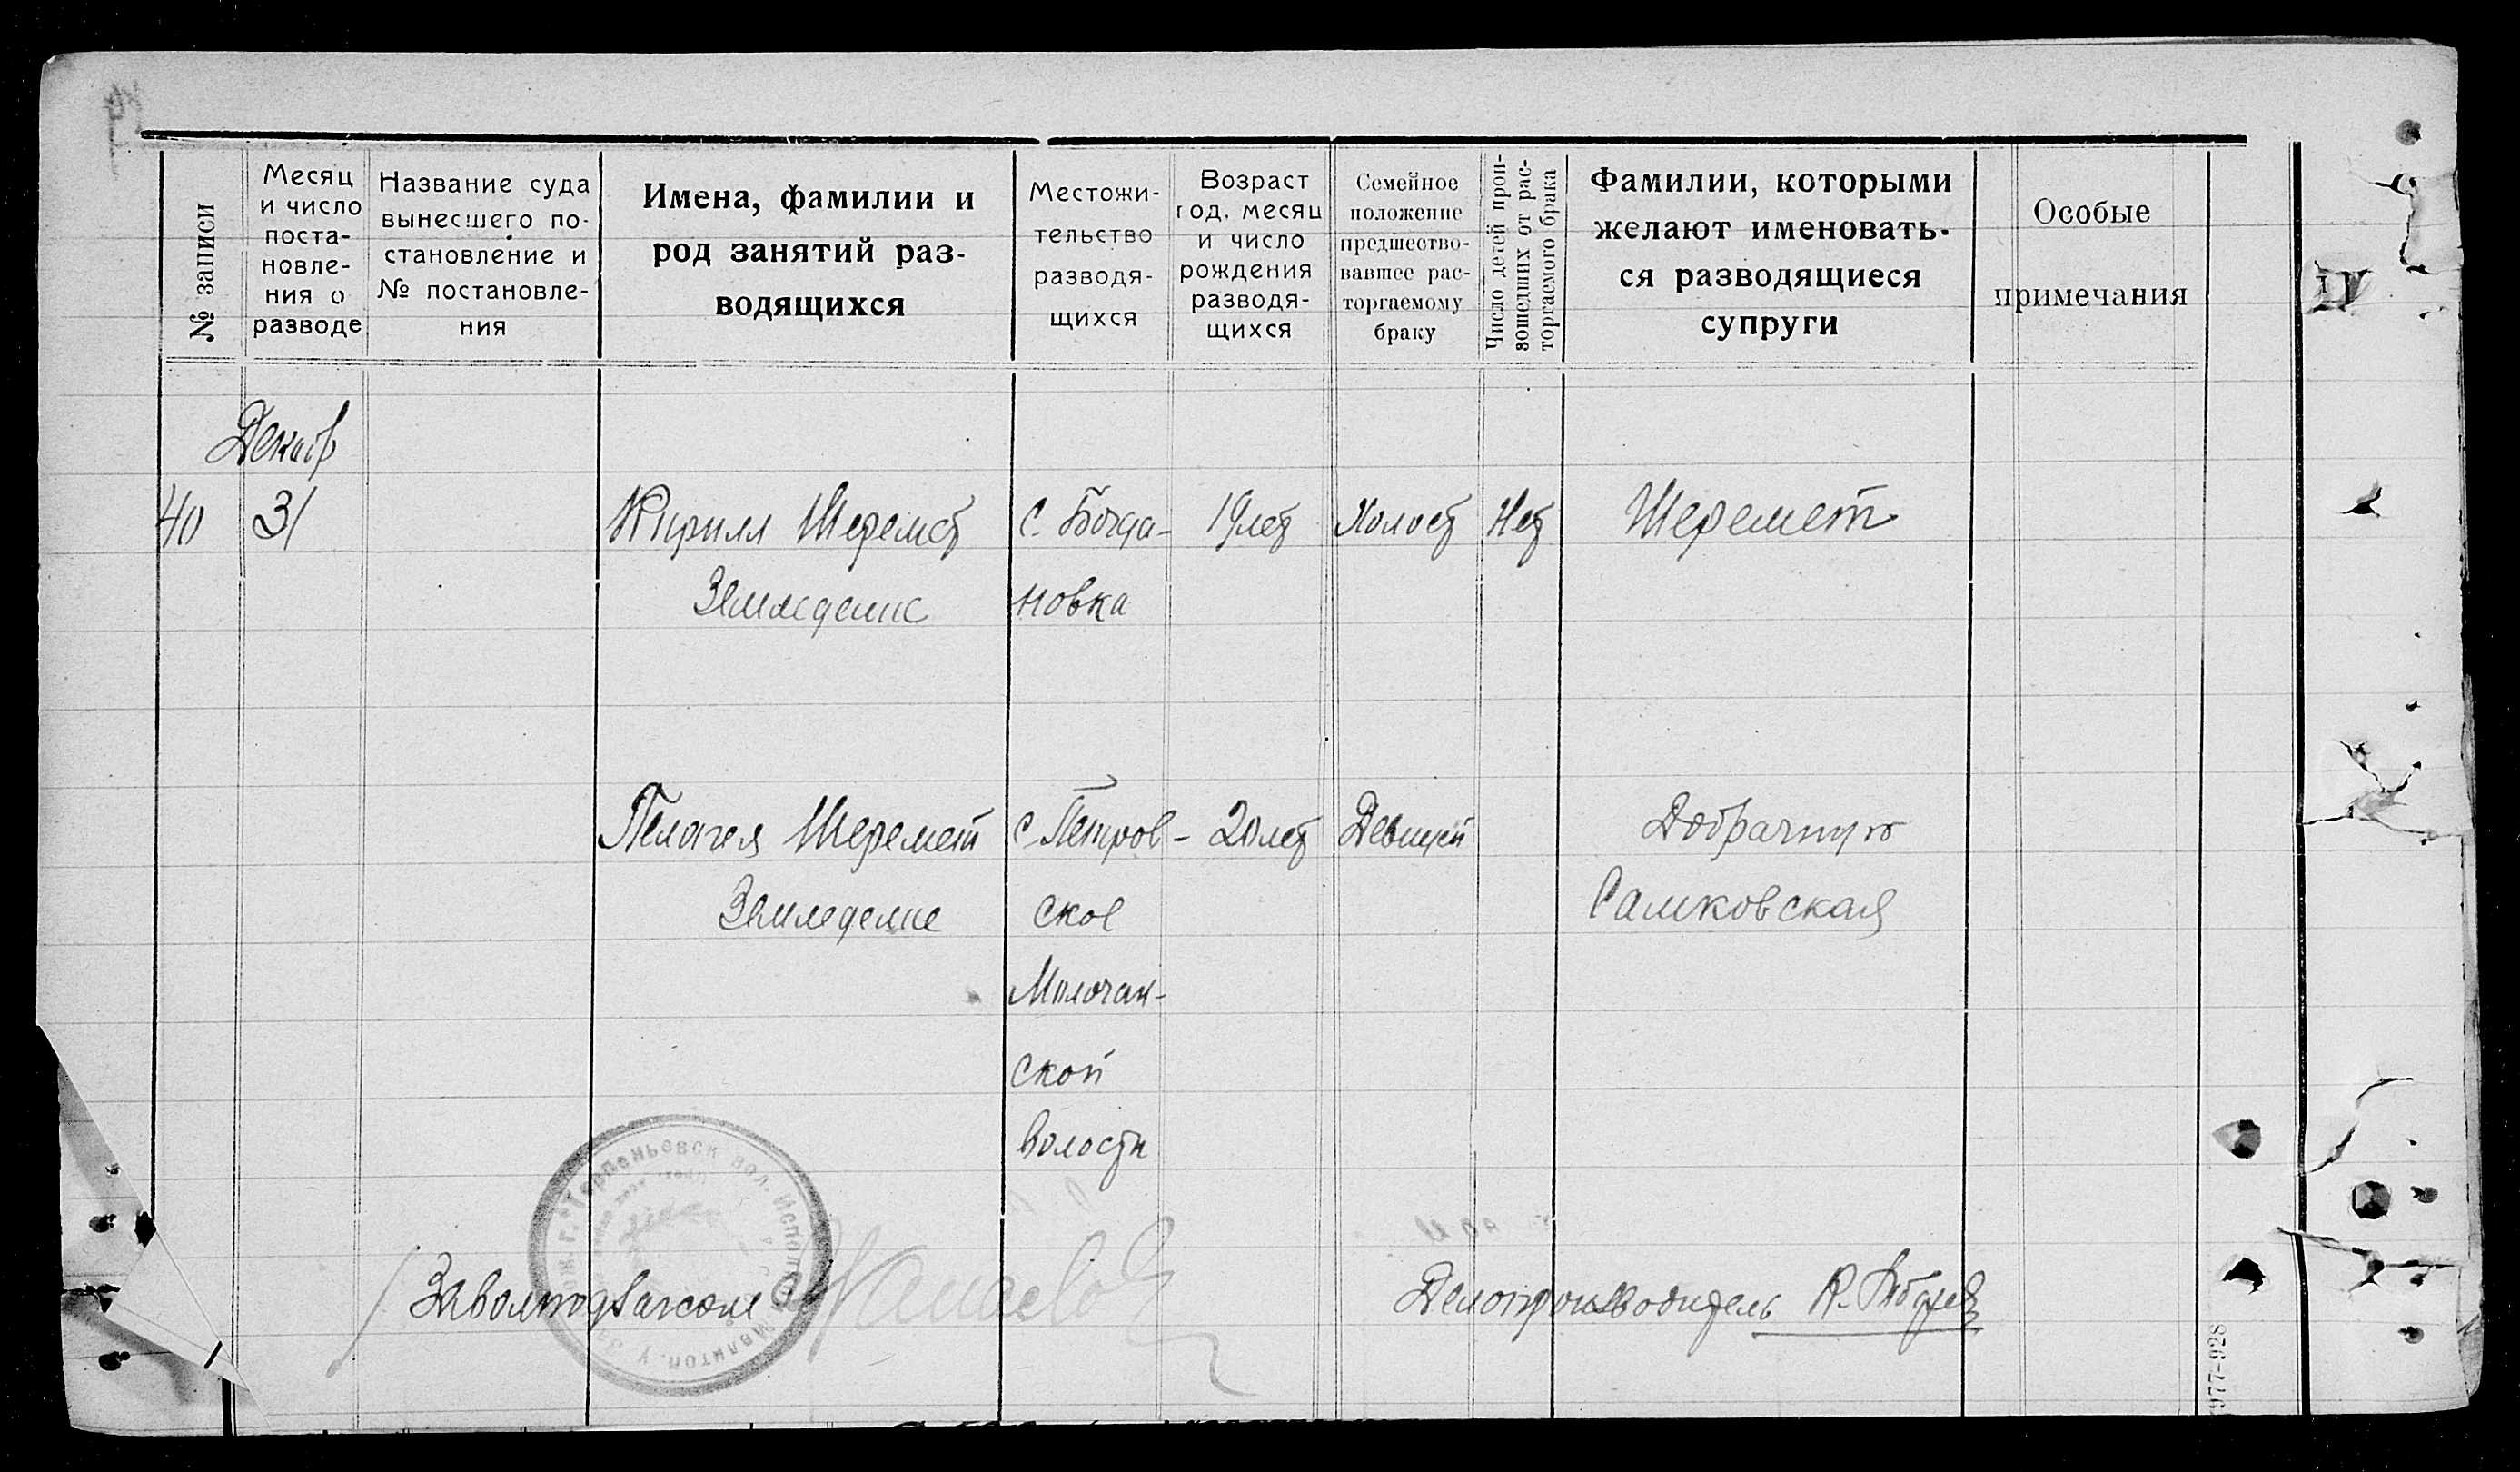 № записи
Месяц
и число
поста-
новле-
ния о
разводе
Название суда
вынесшего по-
становление и
№ постановле-
ния
Имена, фамилии и
род занятий раз-
водящихся
Местожи-
тельство
разводя-
щихся
Возраст
год, месяц
и число
рождения
разводя-
щихся
Семейное
положение
предшество-
вавшее рас-
торгаемому
браку
Число детей прои-
зошедших от рас-
торгаемого брака
Фамилии, которыми
желают именовать-
ся разводящиеся
супруги
Особые
примечания
IV
Декабр
40 31 Кирилл Шеремет с. Богда- 19 лет Холост Нет Шеремет
Земледелие новка
Пелагея Шеремет с. Петров- 20 лет Девицей Добрачную
Земледелие ское Самковская
Молочан-
ской
Волости
Делопроизводитель
7977-928